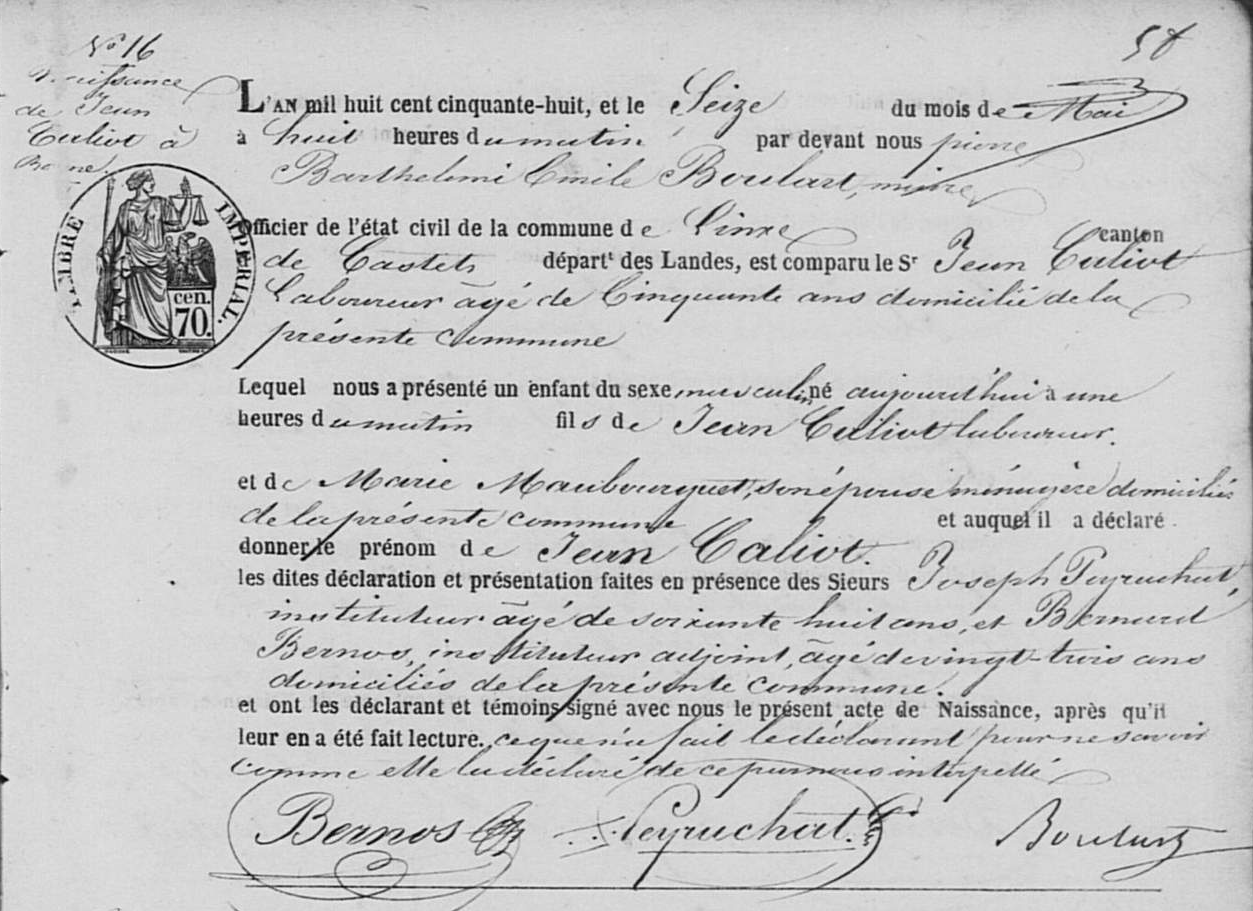 58
N° 16
Naissance
de Jean
Caliot à
L'AN mil huit cent cinquante-huit, et le Seize du mois de Mai
à huit heures du matin par devant nous pierre
Barthelemi Emile Boulart, maire
Officier de l'état civil de la commune de Linxe canton
de Castets départt des Landes, est comparu le Sr Jean Caliot
Laboureur âgé de Cinquante ans domicilié de la
présente commune
Lequel nous a présenté un enfant du sexe masculin né aujourd'hui à une
heures du matin fils de Jean Caliot laboureur.
et de Marie Maubourguet, son épouse ménagère domiciliés
de la présente commune et auquel il a déclaré
donner le prénom de Jean Caliot.
les dites déclaration et présentation faites en présence des Sieurs Joseph Peyruchat,
instituteur âgé de soixante huit ans, et Bernard
Bernos, instituteur adjoint, âgé de vingt-trois ans
domiciliés de la présente commune.
et ont les déclarant et témoins signé avec nous le présent acte de Naissance, après qu'il
leur en a été fait lecture. ce que n'a fait le déclarant pour ne savoir
comme elle l'a déclaré de ce par nous interpellé
Bernos Peyruchat. Boulart
TIMBRE IMPERIAL.
cen.
70.